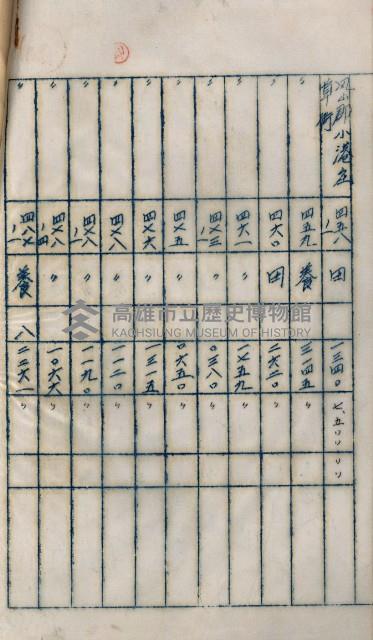 岡山郡小港庄
草衙 四五八ノ一 田 一三四〇 七、五〇〇〇〇
〃 四五九 養 三一四五 〃
〃 四六〇 田 二六二〇 〃
〃 四六一 〃 一七五九 〃
〃 四七三ノ一 〃 〇三八〇 〃
〃 四七五 〃 〇六五〇 〃
〃 四七六 〃 一三一五 〃
〃 四七八 〃 一一二〇 〃
〃 四七八ノ一 〃 一一九〇 〃
〃 四七八ノ四 〃 一〇六六 〃
〃 四八七ノ一 養 八二二六一 〃
高雄市立歷史博物館
KAOHSIUNG MUSEUM OF HISTORY